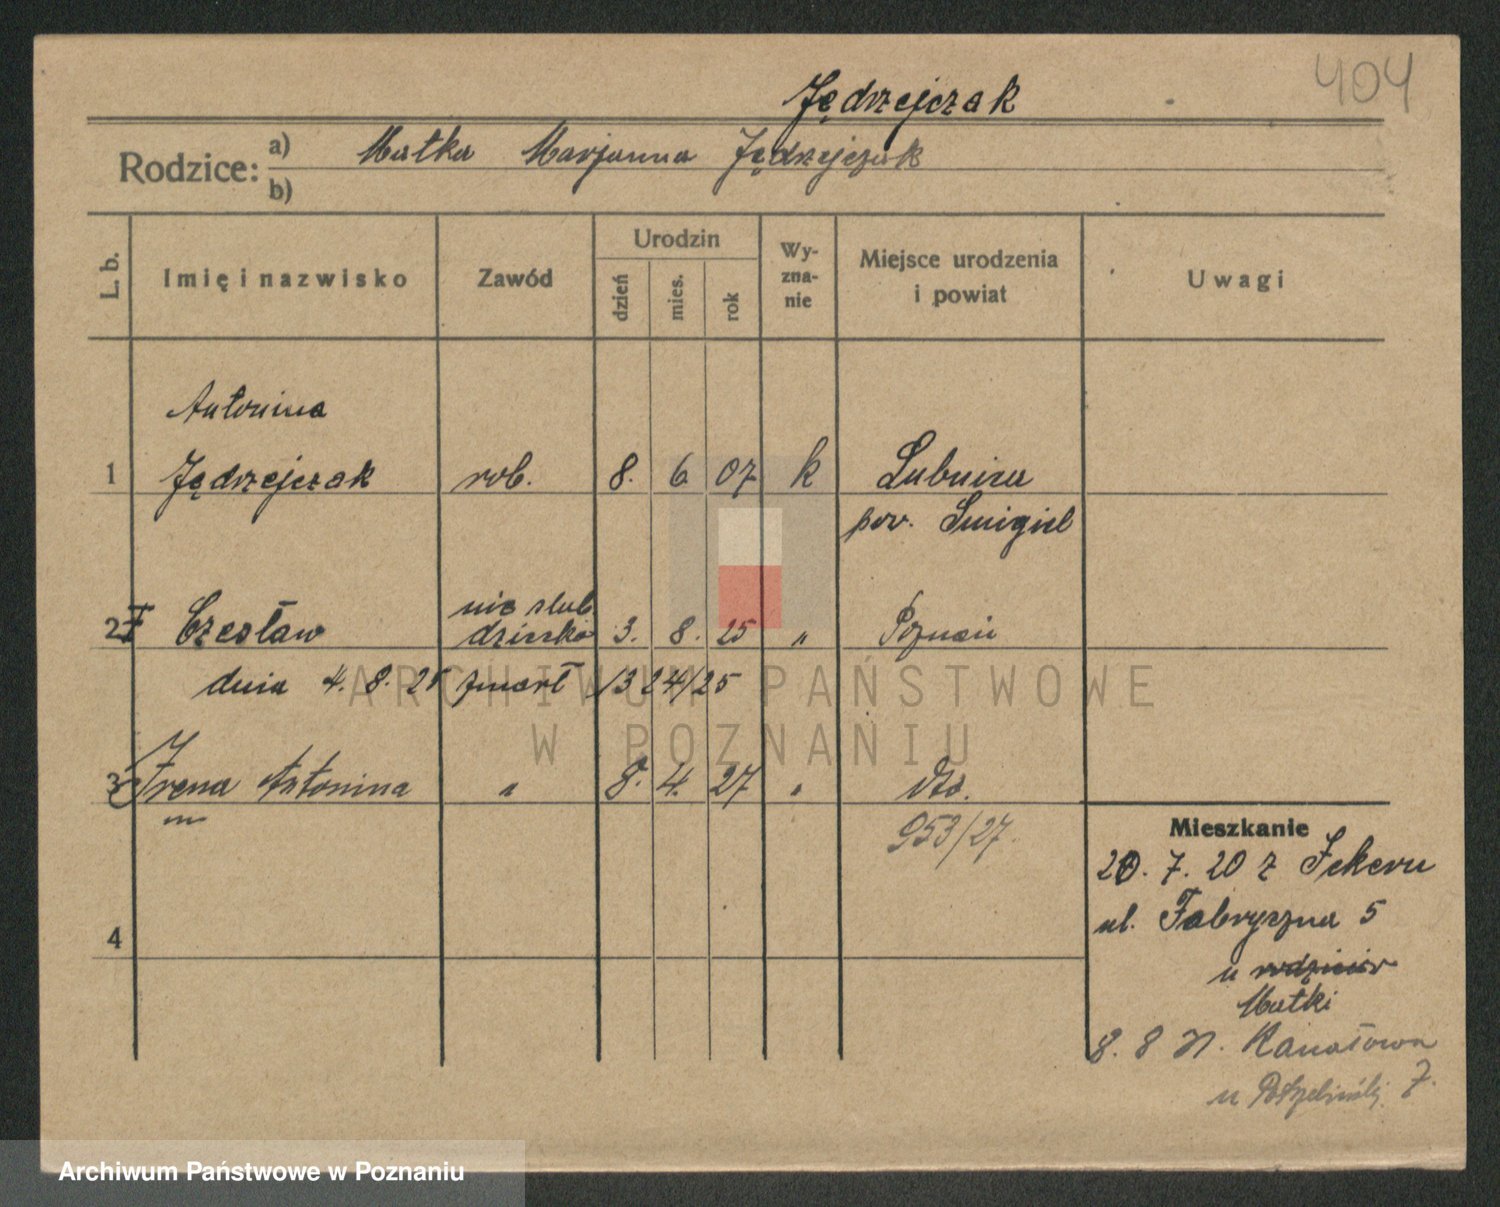 404
Jędrzejczak
Rodzice: a) Matka Marjanna Jędrzejczak
b)
L. b. Imię i nazwisko Zawód Urodzin dzień mies. rok Wyznanie Miejsce urodzenia i powiat Uwagi
Antonina
1 Jędrzejczak rob. 8. 6 07 k Lubnica
pow. Śmigiel
nie slub
2 Czesław dziecko 3. 8. 25 „ Poznań
dnia 4. 8. 25 zmarł 1324/25
3 Irena Antonina „ 8. 4. 27 „ dto.
953/27.
Mieszkanie
20. 7. 20 z
ul. Fabryczna 5
u rodziców
Matki
4
8. 8 Kanałowa
u 7.
ARCHIWUM PAŃSTWOWE
W POZNANIU
Archiwum Państwowe w Poznaniu